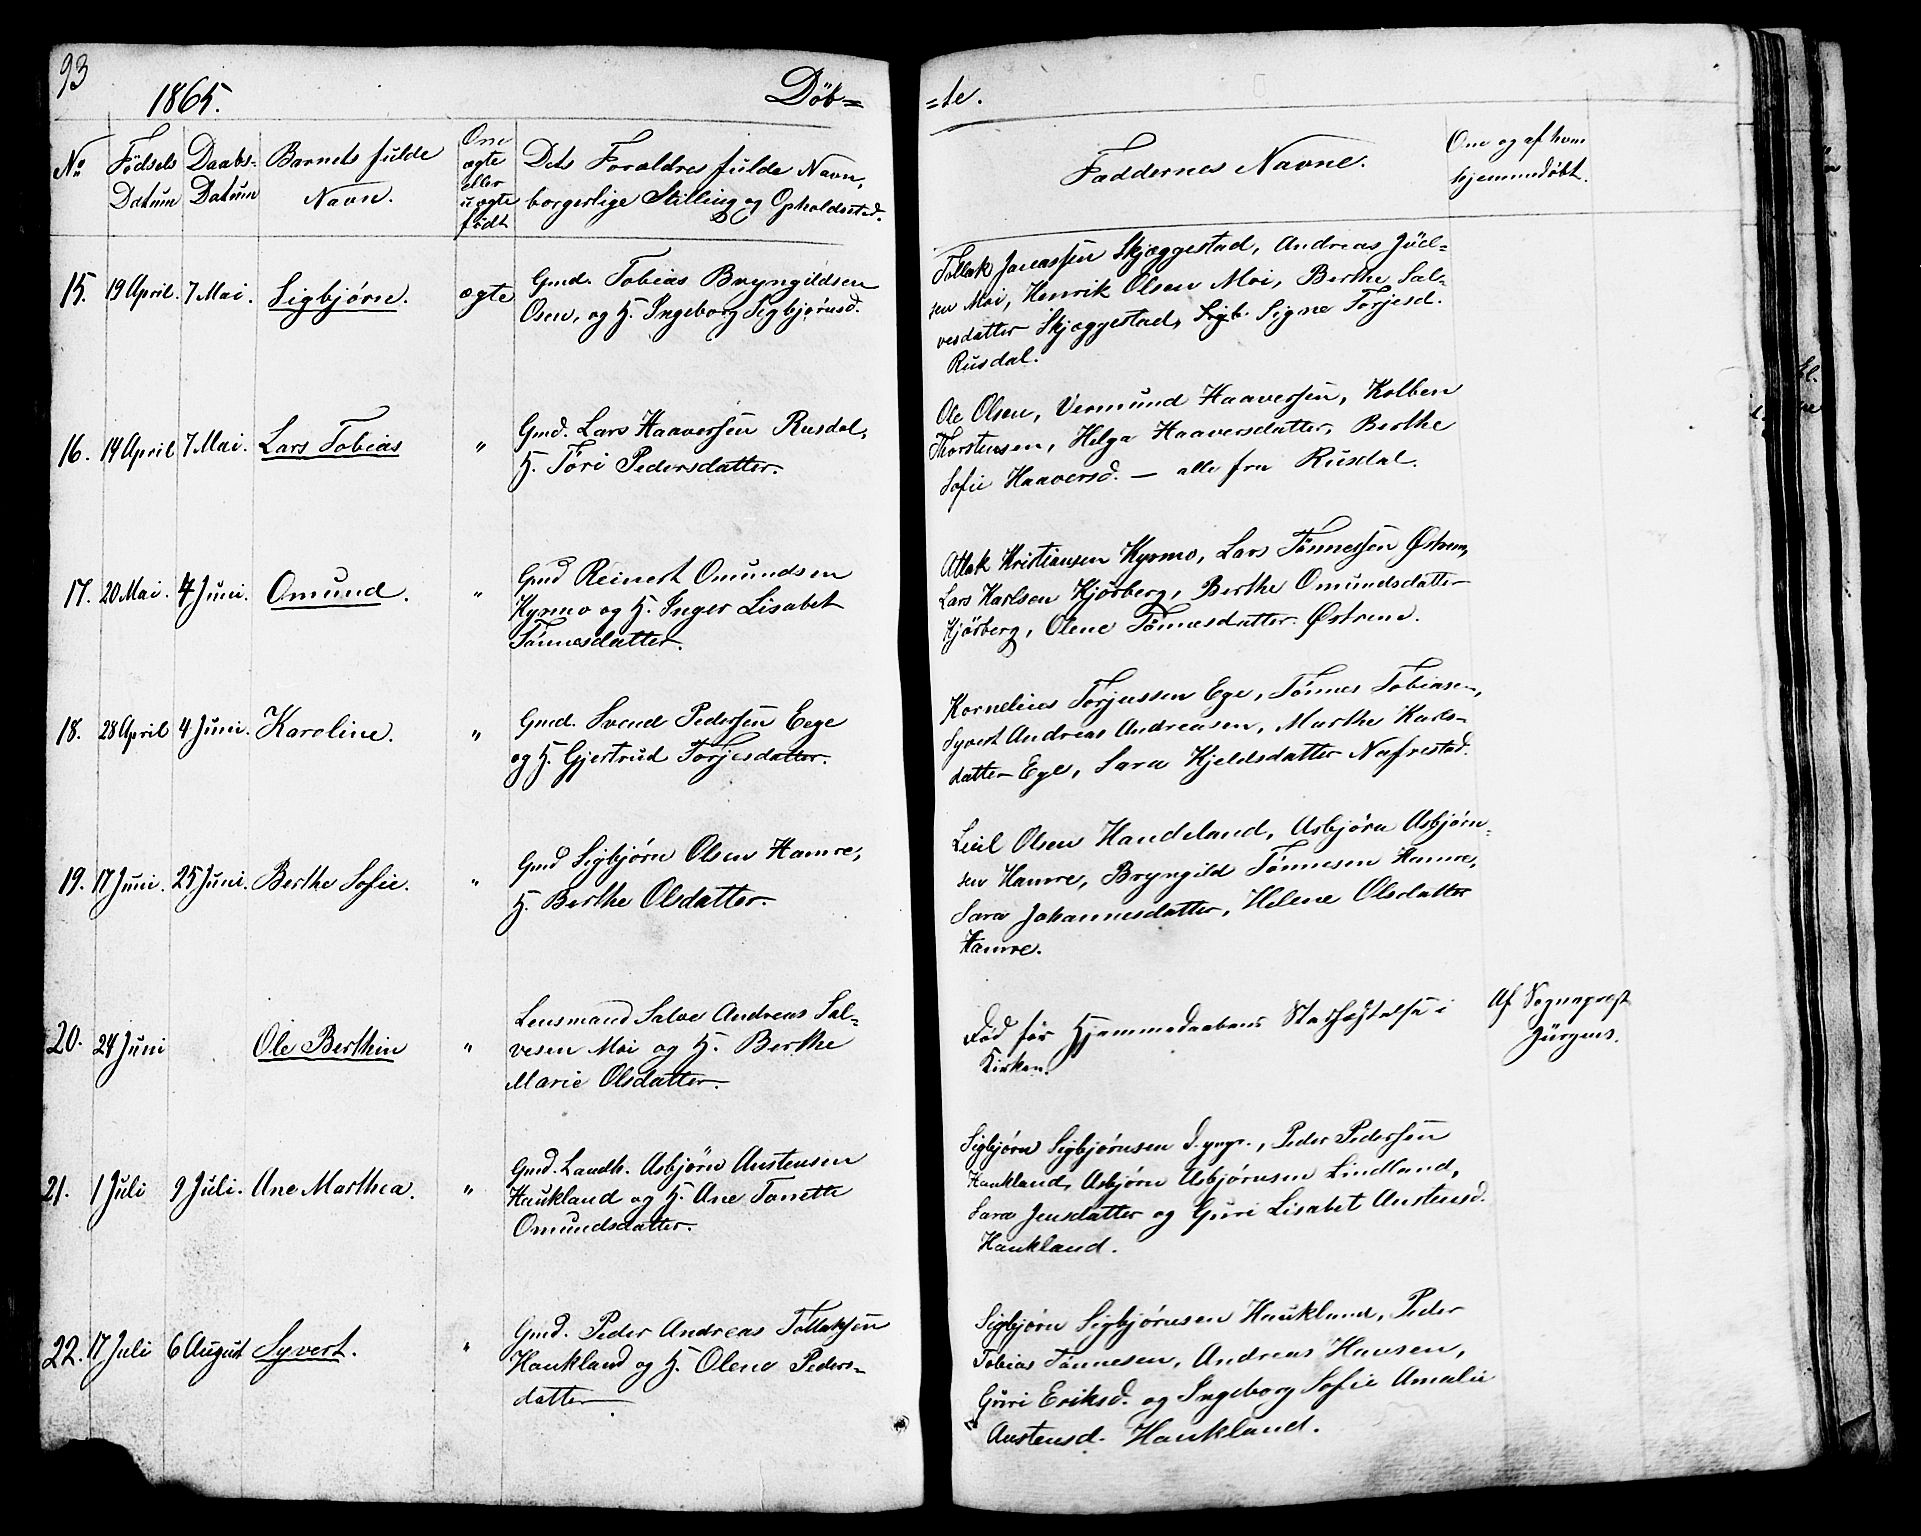 93
1865.
Döb=
=te.
No
Födsels Datum
Daabs- Datum
Barnets fulde Navn.
Om ægte eller uægte födt
Dets Forældres fulde Navn, borgerlige Stilling og Opholdssted.
Faddernes Navne.
Om og af hvem hjemmedøbt.
15. 19 April. 7 Mai. Sigbjørn. ægte
Gmd. Tobias Bryngildsen
Osen, og H. Ingeborg Sigbjörnsd.
Tollak Jonassen Skjæggestad, Andreas Jüel=
sen Moi, Henrik Olsen Moi, Berthe Sal=
vesdatter Skjæggestad, Sigb. Signe Torjesd.
Rusdal.
16. 14 April 7 Mai. Lars Tobias "
Gmd. Lars Haaversen Rusdal,
H. Töri Pedersdatter.
Ole Olsen, Vermund Haaversen, Kolben
Thorstensen, Helga Haaversdatter, Berthe
Sofie Haaversd. — alle fra Rusdal.
17. 20 Mai. 4 Juni. Omund. "
Gmd Reinert Omundsen
Hyrmo og H. Inger Lisabet
Tönnesdatter.
Atlak Kristiansen Hyrmo, Lars Tönnessen Østrem,
Lars Karlsen Hjörberg, Berthe Omundsdatter
Hjörberg, Olene Tönnesdatter Østrem.
18. 28 April 4 Juni. Karoline. "
Gmd. Svend Pedersen Eege
og H. Gjertrud Torjesdatter.
Kornelius Torjussen Ege, Tönnes Tobiasen,
Syvert Andreas Andreasen, Marthe Karls-
datter Ege, Sara Kjeldsdatter Nafrestad.
19. 17 Juni. 25 Juni. Berthe Sofie. "
Gmd Sigbjørn Olsen Hamre,
H. Berthe Olsdatter.
Olsen Handeland, Asbjørn Asbjørn-
sen Hamre, Bryngild Tönnesen Hamre,
Sara Johannesdatter, Helene Olsdatter
Hamre.
20. 24 Juni Ole Berthin "
Lensmand Salve Andreas Sal=
vesen Moi og H. Berthe
Marie Olsdatter.
Død før Hjemmedaabens Stadfæstelse i
Kirken.
Af Sognepræst
Jürgens.
21. 1 Juli 9 Juli. Ane Marthea. "
Gmd. Landh. Asbjörn Austensen
Haukland og H. Ane Tonette
Omundsdatter.
Sigbjørn Sigbjørnsen d. yngr., Peder Pedersen
Haukland, Asbjørn Asbjørnsen Lindland,
Sara Jensdatter og Guri Lisabet Austensd.
Haukland.
22. 17 Juli 6 August Syvert. "
Gmd. Peder Andreas Tollaksen
Haukland og H. Olene Peders-
datter
Sigbjørn Sigbjørnsen Haukland, Peder
Tobias Tønnesen, Andreas Hansen,
Guri Eriksd. og Ingeborg Sofie Amalie
Austensd. Haukland.